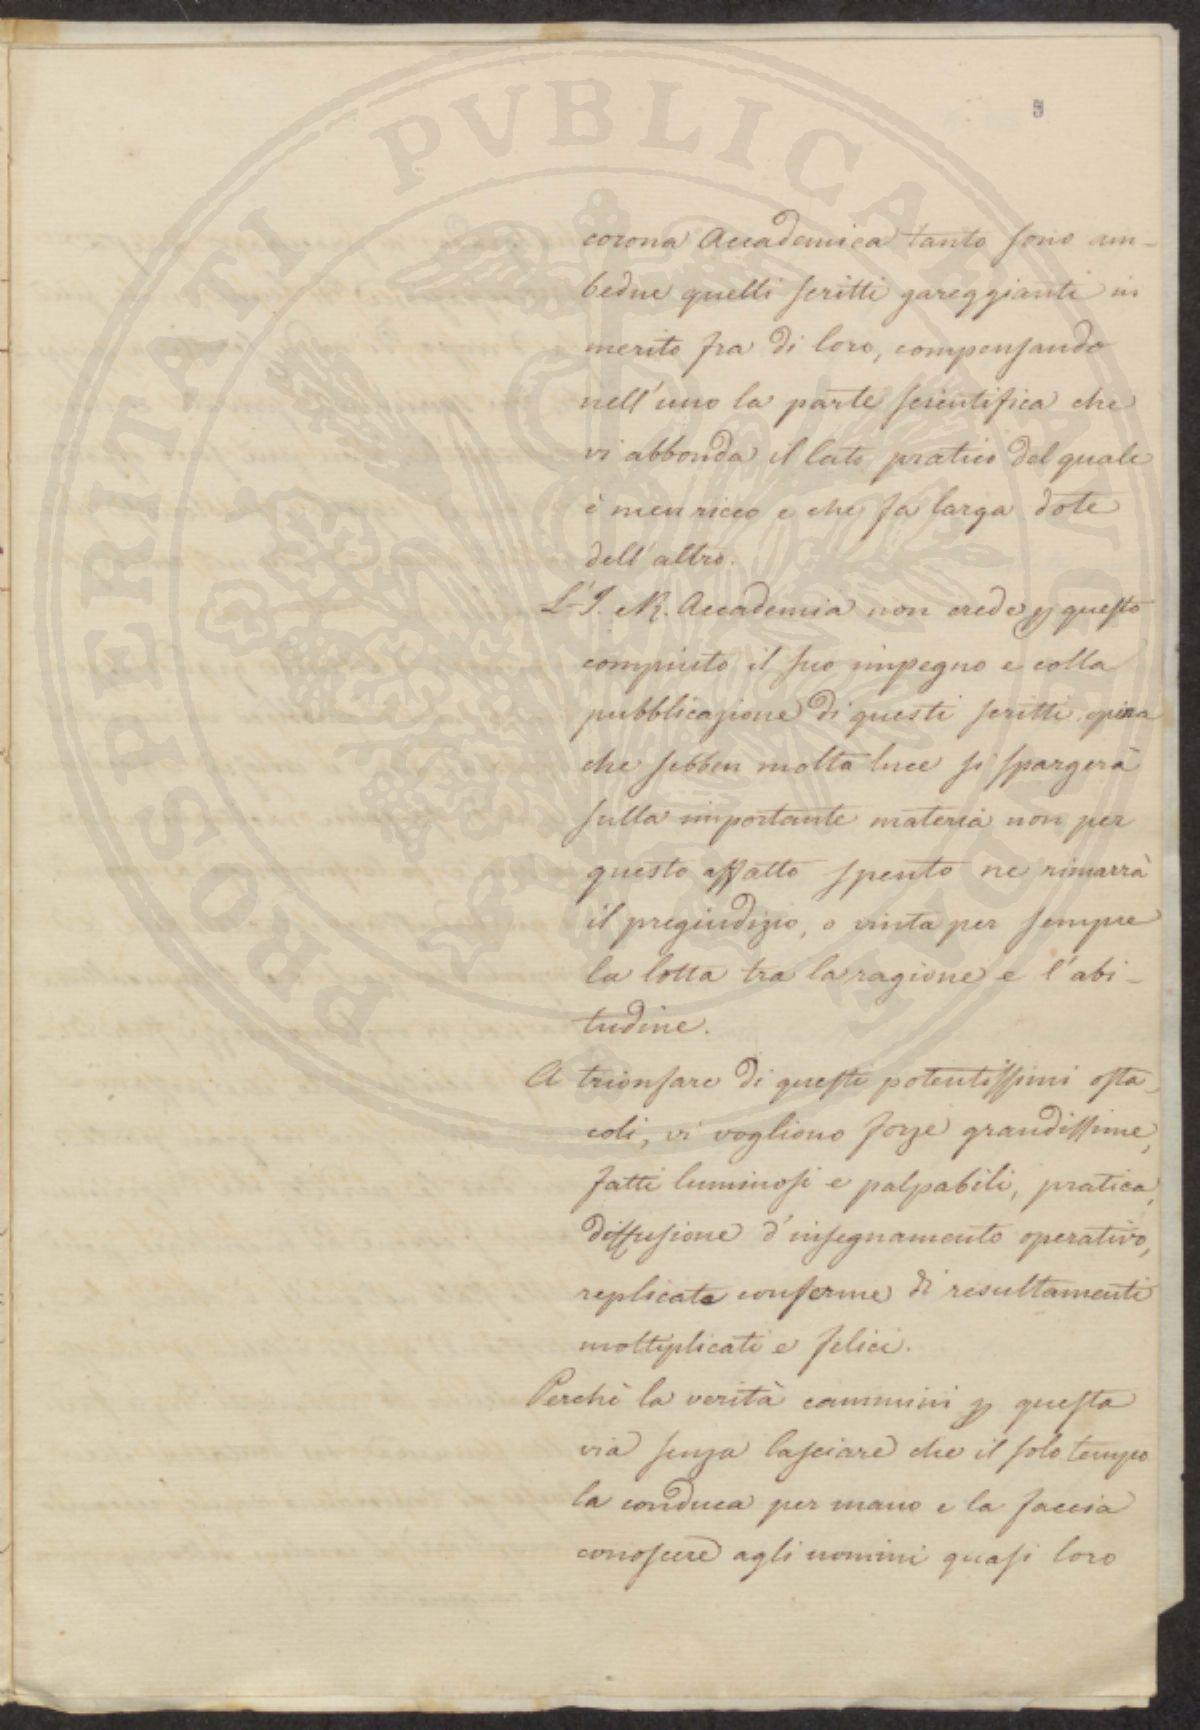 5
corona Accademica tanto sono am-
bedue quelli scritti gareggianti in
merito fra di loro, compensando
nell'uno la parte scientifica che
vi abbonda il lato pratico del quale
è men ricco e che fa larga dote
dell'altro.
L'I. e R. Accademia non crede p questo
compiuto il suo impegno e colla
pubblicazione di questi scritti opina
che sebben molta luce si spargerà
sulla importante materia non per
questo affatto spento ne rimarrà
il pregiudizio, o vinta per sempre
la lotta tra la ragione e l'abi-
tudine.
A trionfare di questi potentissimi osta-
coli, vi vogliono forze grandissime,
fatti luminosi e palpabili, pratica,
diffusione d'insegnamento operativo,
replicate conferme di resultamenti
moltiplicati e felici.
Perchè la verità cammini p questa
via senza lasciare che il solo tempo
la conduca per mano e la faccia
conoscere agli uomini quasi loro
PROSPERITATI PVBLICAE